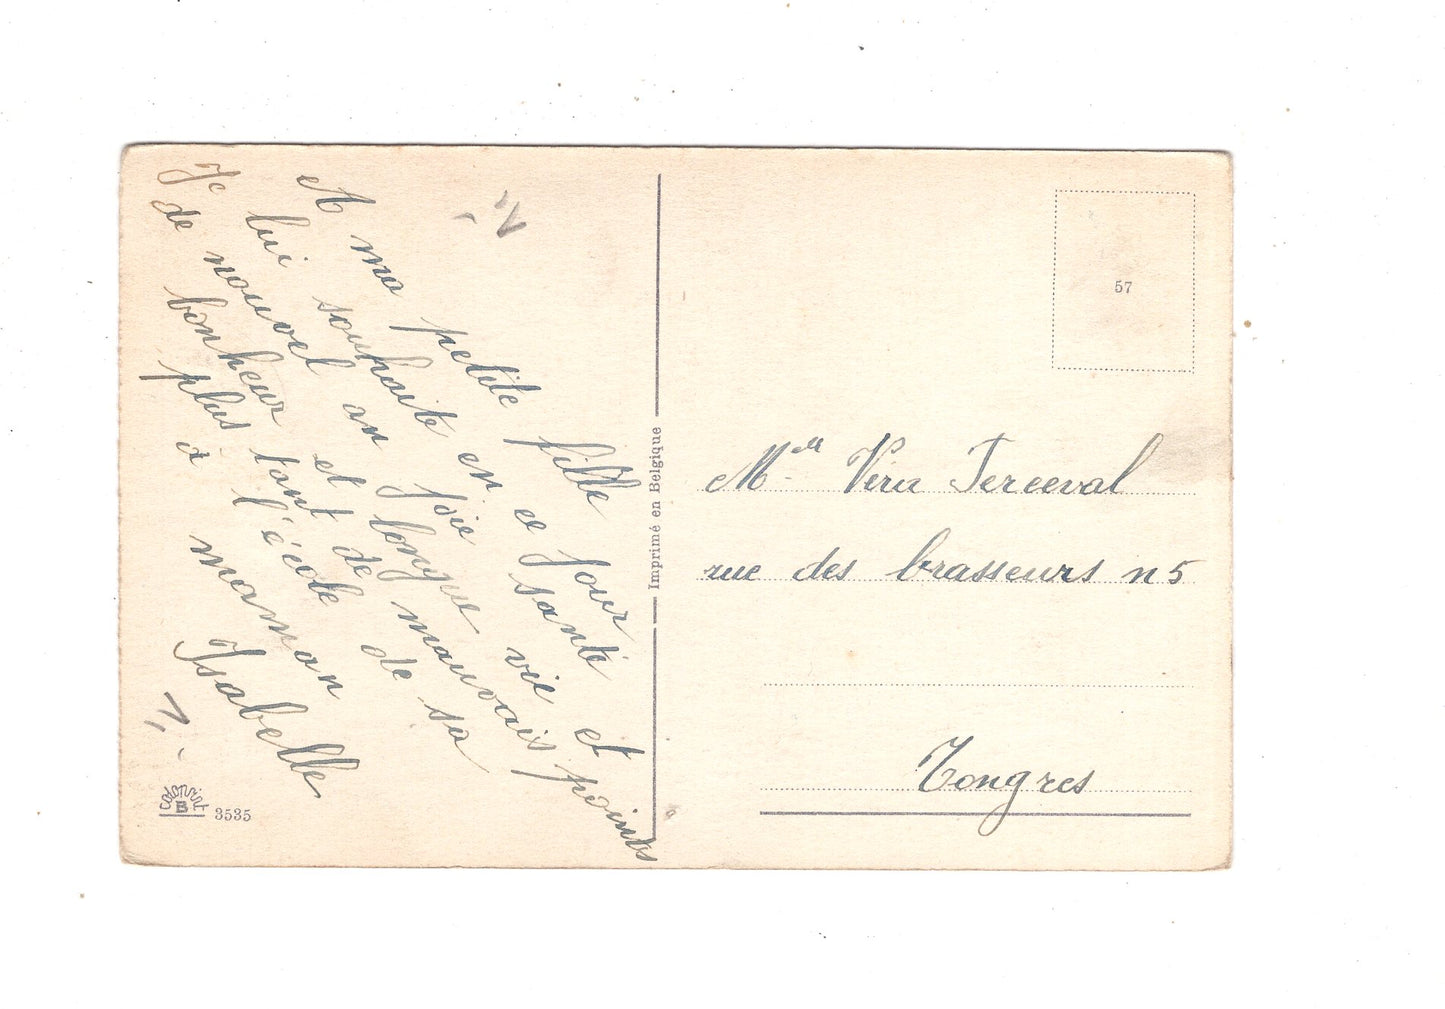 A ma petite fille
Je lui souhaite en ce jour
de nouvel an Joie santé
bonheur et longue vie et
plus tant de mauvais points
a l'école de sa
maman
Isabelle
Colorprint
B
3535
Imprimé en Belgique
57
Melle Vera Terceval
rue des brasseurs n 5
Tongres